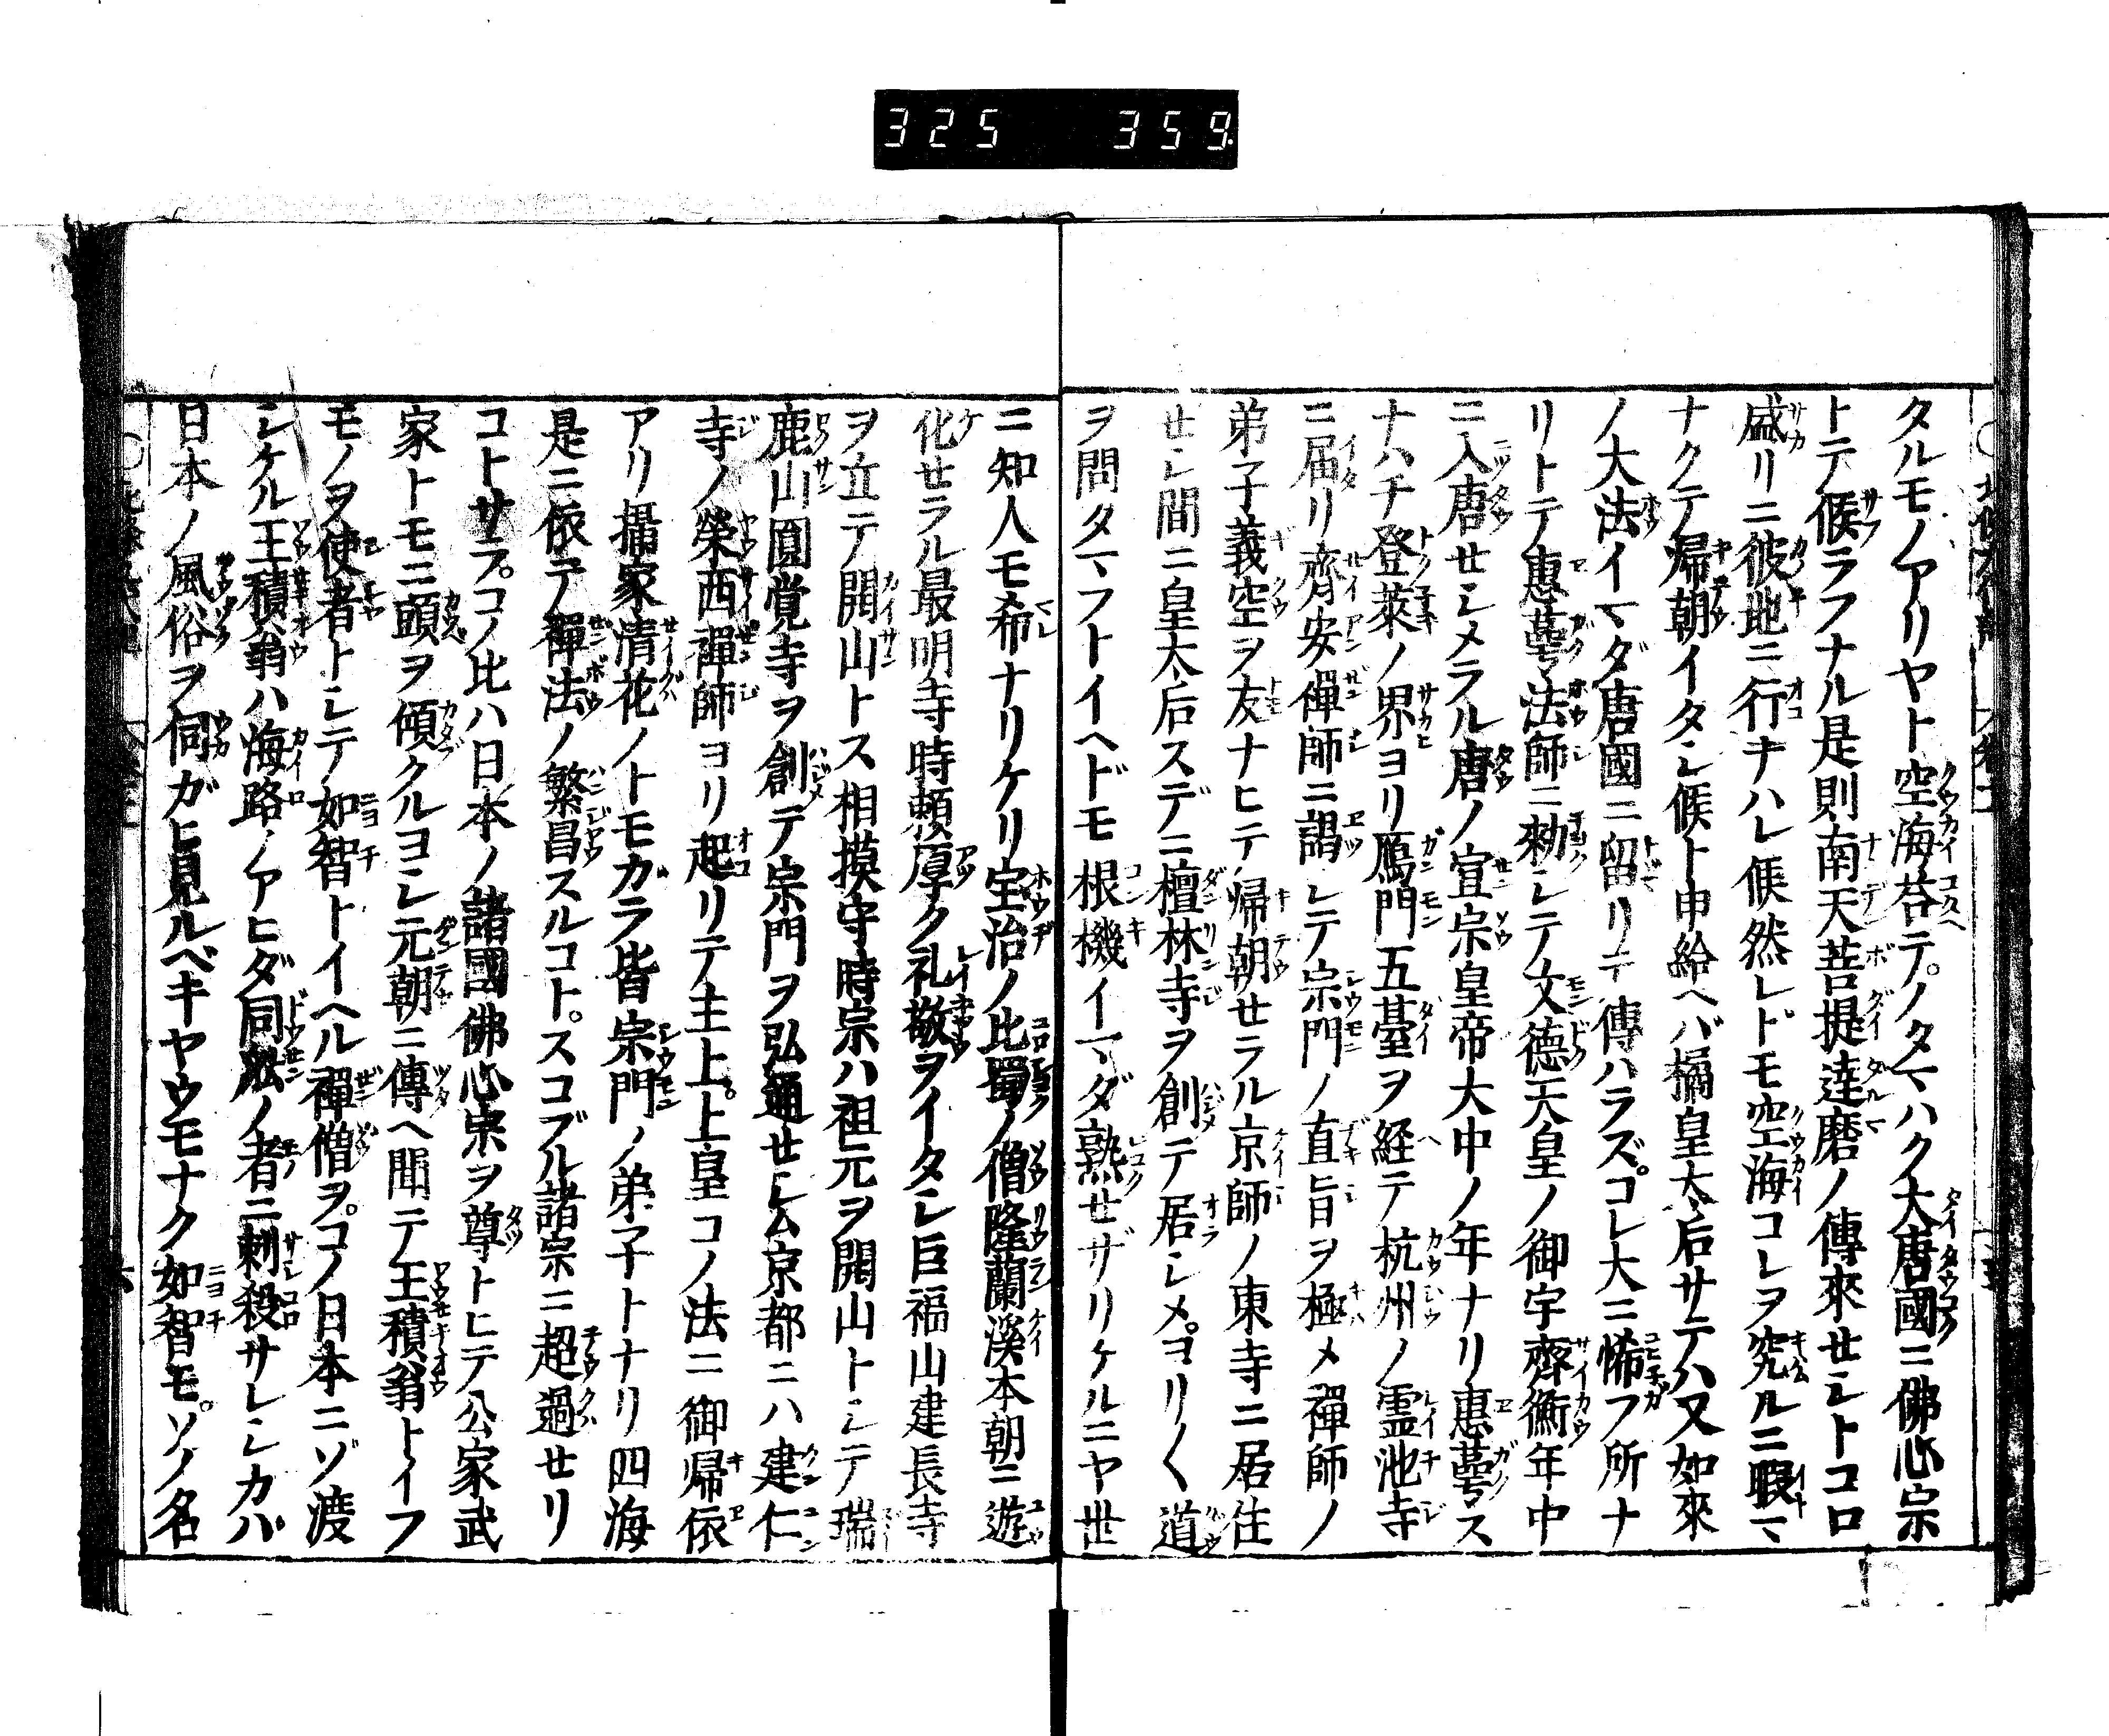 325 359
タルモノアリヤト空海荅テノタマハク大唐國ニ佛心宗
トテ候ラフナル是則南天菩提達磨ノ傳來せシトコロ
盛リニ彼地ニ行ナハレ候然レトモ空海コレヲ究ルニ暇マ
ナクテ帰朝イタシ候ト申給ヘバ橘皇太后サテハ又如來
ノ大法イマダ唐國ニ留リテ傳ハラズコレ大ニ悕フ所ナ
リトテ惠萼法師ニ勅シテ文徳天皇ノ御宇齊衡年中
ニ入唐せシメラル唐ノ宣宗皇帝大中ノ年ナリ惠萼ス
ナハチ登萊ノ界ヨリ鴈門五臺ヲ経テ杭州ノ霊池寺
ニ届リ齊安禪師ニ謁シテ宗門ノ直旨ヲ極メ禪師ノ
弟子義空ヲ友ナヒテ帰朝せラル京師ノ東寺ニ居住
せシ間ニ皇太后スデニ檀林寺ヲ創テ居シメヨリ〱道
ヲ問タマフトイヘドモ根機イマダ熟せザリケルニヤ世
ニ知人モ希ナリケリ宝治ノ比蜀ノ僧隆蘭溪本朝ニ遊
化せラル最明寺時頼厚ク礼敬ヲイタシ巨福山建長寺
ヲ立テ開山トス相摸守時宗ハ祖元ヲ開山トシテ瑞
鹿山圓覚寺ヲ創テ宗門ヲ弘通せシム京都ニハ建仁
寺ノ榮西禪師ヨリ起リテ主上上皇コノ法ニ御帰依
アリ攝家清花ノトモガラ皆宗門ノ弟子トナリ四海
是ニ依テ禪法ノ繁昌スルコトスコブル諸宗ニ超過せリ
コトサラコノ比ハ日本ノ諸國佛心宗ヲ尊トヒテ公家武
家トモニ頭ヲ傾クルヨシ元朝ニ傳ヘ聞テ王積翁トイフ
モノヲ使者トシテ如智トイヘル禪僧ヲコノ日本ニゾ渡
シケル王積翁ハ海路ノアヒダ同舩ノ者ニ刺殺サレシカバ
日本ノ風俗ヲ伺ガヒ見ルベキヤウモナク如智モソノ名